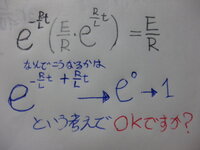 e^{R/L t}(E/R・e^{R/L t}) = E/R
なんでこうなるかは
e^{-R/L t + R/L t} → e^0 → 1
という考えで OKですか?